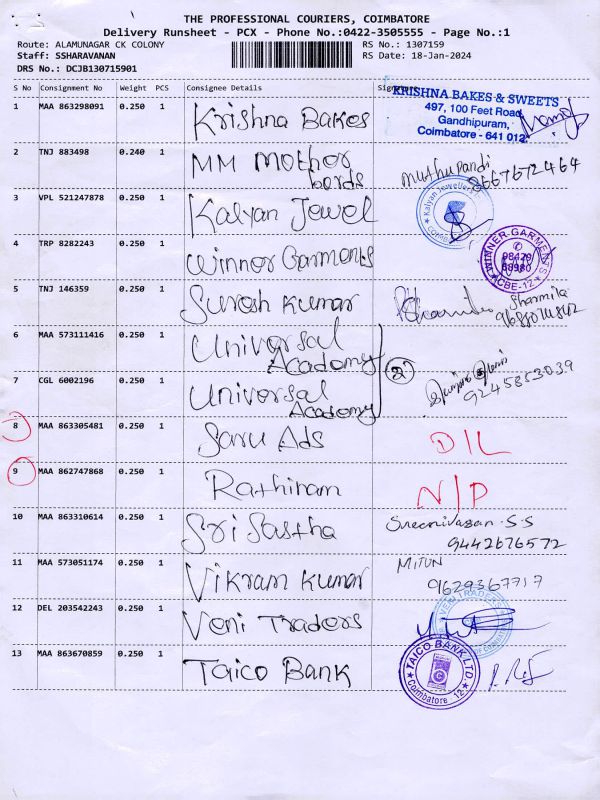 THE PROFESSIONAL COURIERS, COIMBATORE
Delivery Runsheet - PCX - Phone No.:0422-3505555 - Page No.:1
Route: ALAMUNAGAR CK COLONY
RS No.: 1307159
Staff: SSHARAVANAN
RS Date: 18-Jan-2024
DRS No.: DCJB130715901
S No Consignment No Weight PCS Consignee Details
KRISHNA BAKES & SWEETS
497, 100 Feet Road
Gandhipuram,
Coimbatore - 641 012
1 MAA 863298091 0.250 1 Krishna Bakes
2 TNJ 883498 0.240 1 MM Mother
bords
muthupandi
8667672464
3 VPL 521247878 0.250 1 Kalyan Jewel
Kalyan Jewellers
4 TRP 8282243 0.250 1 Winner Garments
WINNER GARMENTS
98429
68980
CBE-12
5 TNJ 146359 0.250 1 Suresh Kumar
Sharmila
6 MAA 573111416 0.250 1 Universal
Academy
2
7 CGL 6002196 0.250 1 Universal
Academy
9245853039
8 MAA 863305481 0.250 1 Saru Ads D/L
9 MAA 862747868 0.250 1 Rathinam N/P
10 MAA 863310614 0.250 1 Sri Sastha Sreenivasan .S.S
9442676572
11 MAA 573051174 0.250 1 Vikram Kumar MITUN
9629367717
12 DEL 203542243 0.250 1 Veni Traders
VENI TRADERS
13 MAA 863670859 0.250 1 Taico Bank
TAICO BANK LTD.
Coimbatore - 12